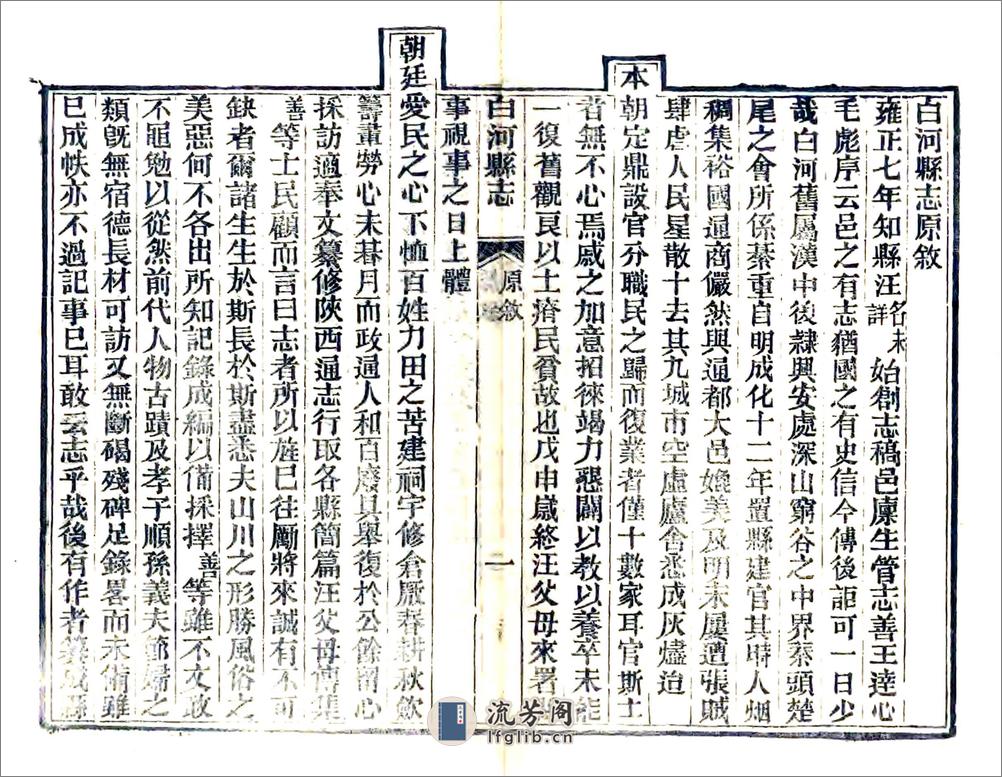 白河縣志原敘
雍正七年知縣汪名未詳始創志稿邑廩生管志善王達心
毛彪序云邑之有志猶國之有史信今傳後詎可一日少
哉白河舊屬漢中後隸興安處深山窮谷之中界秦頭楚
尾之會所係綦重自明成化十二年置縣建官其時人烟
稠集裕國通商儼然與通都大邑媲美及明末屢遭張賊
肆虐人民星散十去其九城市空虛廬舍悉成灰燼迨
本朝定鼎設官分職民之歸而復業者僅十數家耳官斯土
者無不心焉戚之加意招徠竭力懇闢以教以養卒未能
一復舊觀良以土瘠民貧故也戊申歲終汪父母來署
白河縣志 原敘 二
事視事之日上體
朝廷愛民之心下恤百姓力田之苦建祠宇修倉厫春耕秋斂
籌畫勞心未朞月而政通人和百廢具舉復於公餘留心
採訪適奉文纂修陝西通志行取各縣簡篇汪父母傳集
善等士民顧而言曰志者所以旌已往勵將來誠有不可
缺者爾諸生生於斯長於斯盡悉夫山川之形勝風俗之
美惡何不各出所知記錄成編以備採擇善等雖不文敢
不黽勉以從然前代人物古蹟及孝子順孫義夫節婦之
類旣無宿德長材可訪又無斷碣殘碑足錄畧而未備雖
已成帙亦不過記事已耳敢云志乎哉後有作者纂成縣
流芳阁
lfglib.cn